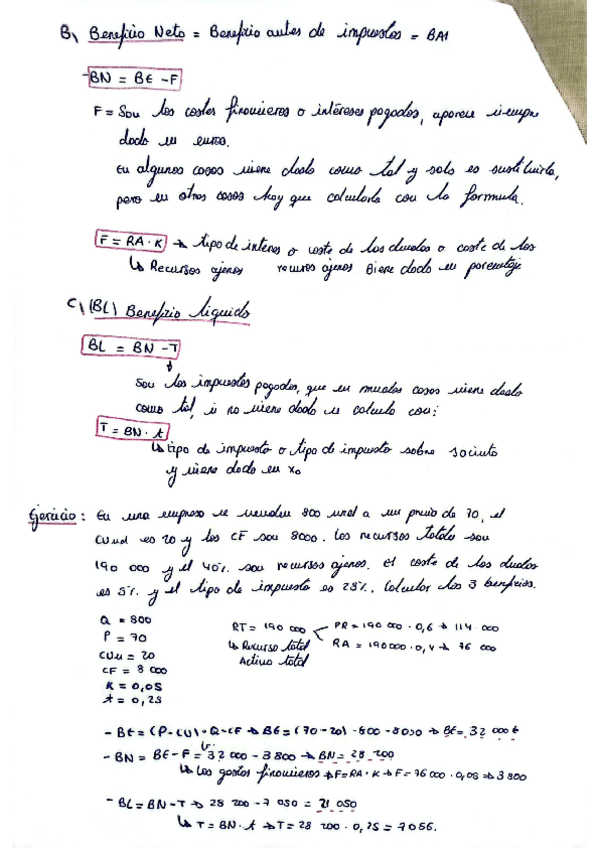 B) Beneficio Neto = Beneficio antes de impuestos = BAI
- BN = BE - F
F = Son los costes financieros o intereses pagados, aparece siempre
dado en euros.
En algunos casos viene dado como tal y solo es sustituirla,
pero en otros casos hay que calcularla con la formula.
F = RA · K → tipo de interes o coste de las deudas o coste de los
↳ Recursos ajenos recursos ajenos Biene dado en porcentaje
C) (BL) Beneficio liquido
BL = BN - T
Son los impuestos pagados, que en muchos casos viene dado
como tal, si no viene dado se calcula con:
T = BN · t
↳ tipo de impuesto o tipo de impuesto sobre sociedades
y viene dado en %
Ejercicio: En una empresa se venden 800 unid a un precio de 70, el
CUud es 20 y los CF son 8000. Los recursos totales son
190 000 y el 40% son recursos ajenos. el coste de las deudas
es 5% y el tipo de impuesto es 25%. Calcular los 3 beneficios.
Q = 800
P = 70
CUu = 20
CF = 8 000
K = 0,05
t = 0,25
RT = 190 000
↳ Recurso total
Activo total
PR = 190 000 · 0,6 → 114 000
RA = 190000 · 0,4 → 76 000
- BE = (P - CU) · Q - CF → BE = (70 - 20) · 800 - 8000 → BE = 32 000 €
- BN = BE - F = 32 000 - 3 800 → BN = 28 200
↳ Los gastos financieros → F = RA · K → F = 76000 · 0,05 → 3 800
- BL = BN - T → 28 200 - 7 050 = 21 050
↳ T = BN · t → T = 28 200 · 0,25 = 7056.